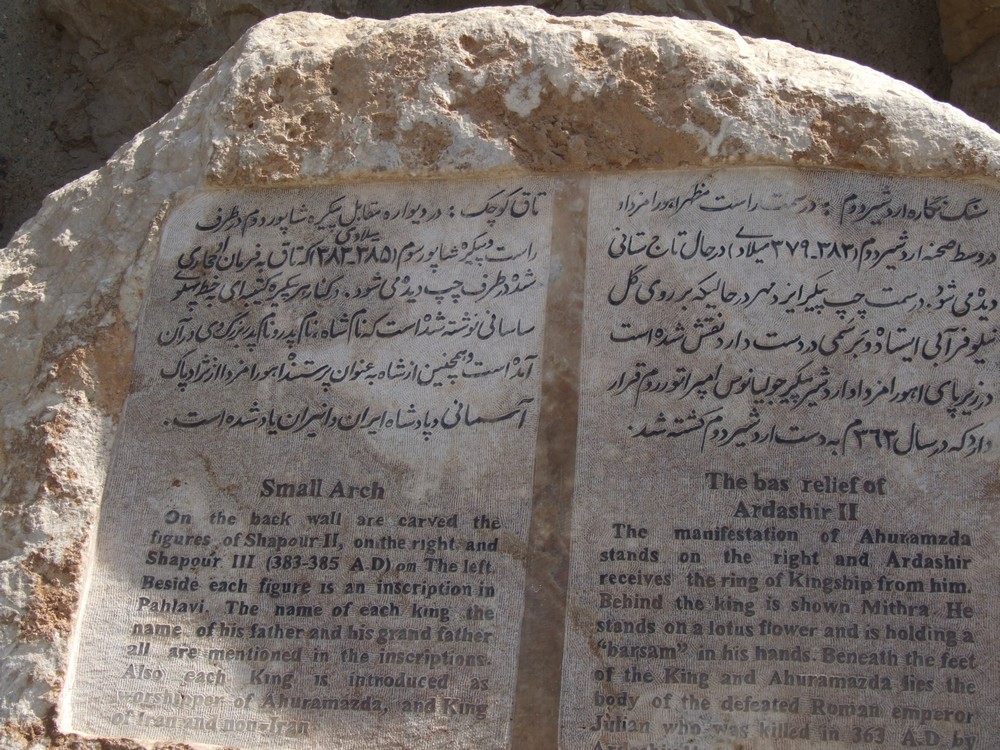 تاق کوچک : در دیواره مقابل پیکره شاپور دوم در طرف
راست و پیکره شاپور سوم (۳۸۵-۳۸۳ میلادی) که تاق به فرمان او حجاری
شده در طرف چپ دیده می شود . در کنار هر پیکره کتیبه ای به خط پهلوی
ساسانی نوشته شده است که نام شاه ، نام پدر و نام پدر بزرگ وی در آن
آمده است و همچنین از شاه به عنوان پرستنده اهورامزدا از نژاد پاک
آسمانی و پادشاه ایران و انیران یاد شده است .
Small Arch
On the back wall are carved the
figures of Shapour II, on the right and
Shapour III (383-385 A.D) on The left.
Beside each figure is an inscription in
Pahlavi. The name of each king the
name of his father and his grand father
all are mentioned in the inscriptions.
Also each King is introduced as
worshipper of Ahuramazda, and King
of Iran and non-Iran
سنگ نگاره اردشیر دوم : در سمت راست مظهر اهورامزدا و
در وسط صحنه اردشیر دوم (۳۸۳-۳۷۹ میلادی) در حال تاج ستانی
دیده می شود . در سمت چپ پیکر ایزد مهر در حالیکه بر روی گل
نیلوفر آبی ایستاده و برسمی در دست دارد نقش شده است
در زیر پای اهورامزدا و اردشیر پیکر جولیانوس امپراتور روم قرار
دارد که در سال ۳۶۳م به دست اردشیر دوم کشته شد .
The bas relief of
Ardashir II
The manifestation of Ahuramzda
stands on the right and Ardashir
receives the ring of Kingship from him.
Behind the king is shown Mithra. He
stands on a lotus flower and is holding a
"barsam" in his hands. Beneath the feet
of the King and Ahuramazda lies the
body of the defeated Roman emperor
Julian who was killed in 363 A.D by